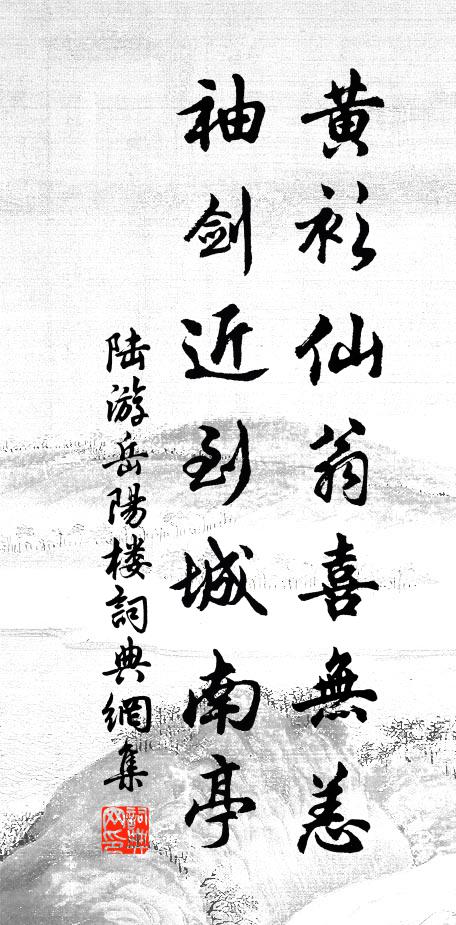 黄衫仙翁喜無恙
袖剑近到城南亭
陆游岳陽楼詞典網集